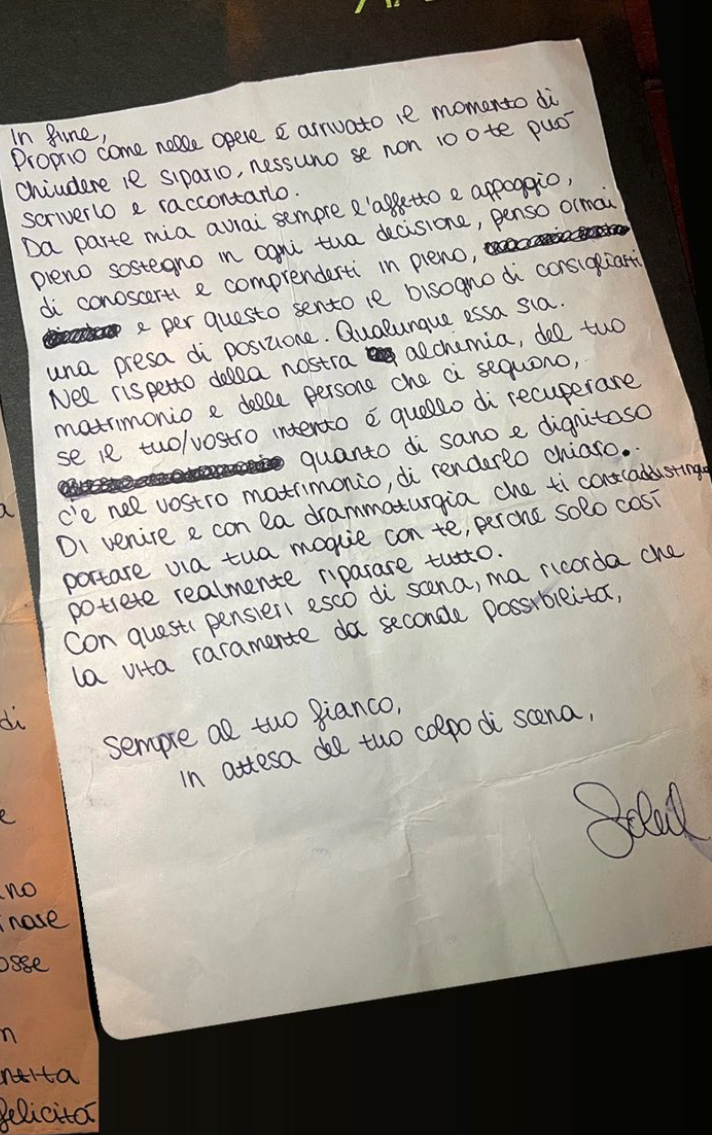 In fine,
Proprio come nelle opere é arrivato il momento di
chiudere il sipario, nessuno se non io o te può
scriverlo e raccontarlo.
Da parte mia avrai sempre l'affetto e appoggio,
pieno sostegno in ogni tua decisione, penso ormai
di conoscerti e comprenderti in pieno,
e per questo sento il bisogno di consigliarti
una presa di posizione. Qualunque essa sia.
Nel rispetto della nostra alchimia, del tuo
matrimonio e delle persone che ci seguono,
se il tuo/vostro intento é quello di recuperare
quanto di sano e dignitoso
c'è nel vostro matrimonio, di renderlo chiaro.
Di venire e con la drammaturgia che ti contraddistingue
portare via tua moglie con te, perché solo così
potrete realmente riparare tutto.
Con questi pensieri esco di scena, ma ricorda che
la vita raramente da seconde possibilità,
Sempre al tuo fianco,
in attesa del tuo colpo di scena,
Soleil
di
e
no
osse
n
felicità